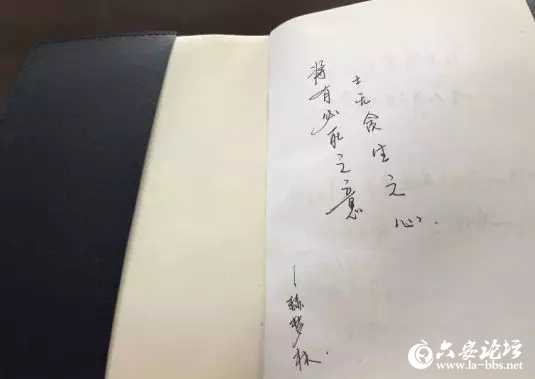 将有必死之意
士无贪生之心.
梦林.
六安论坛
www.la-bbs.net